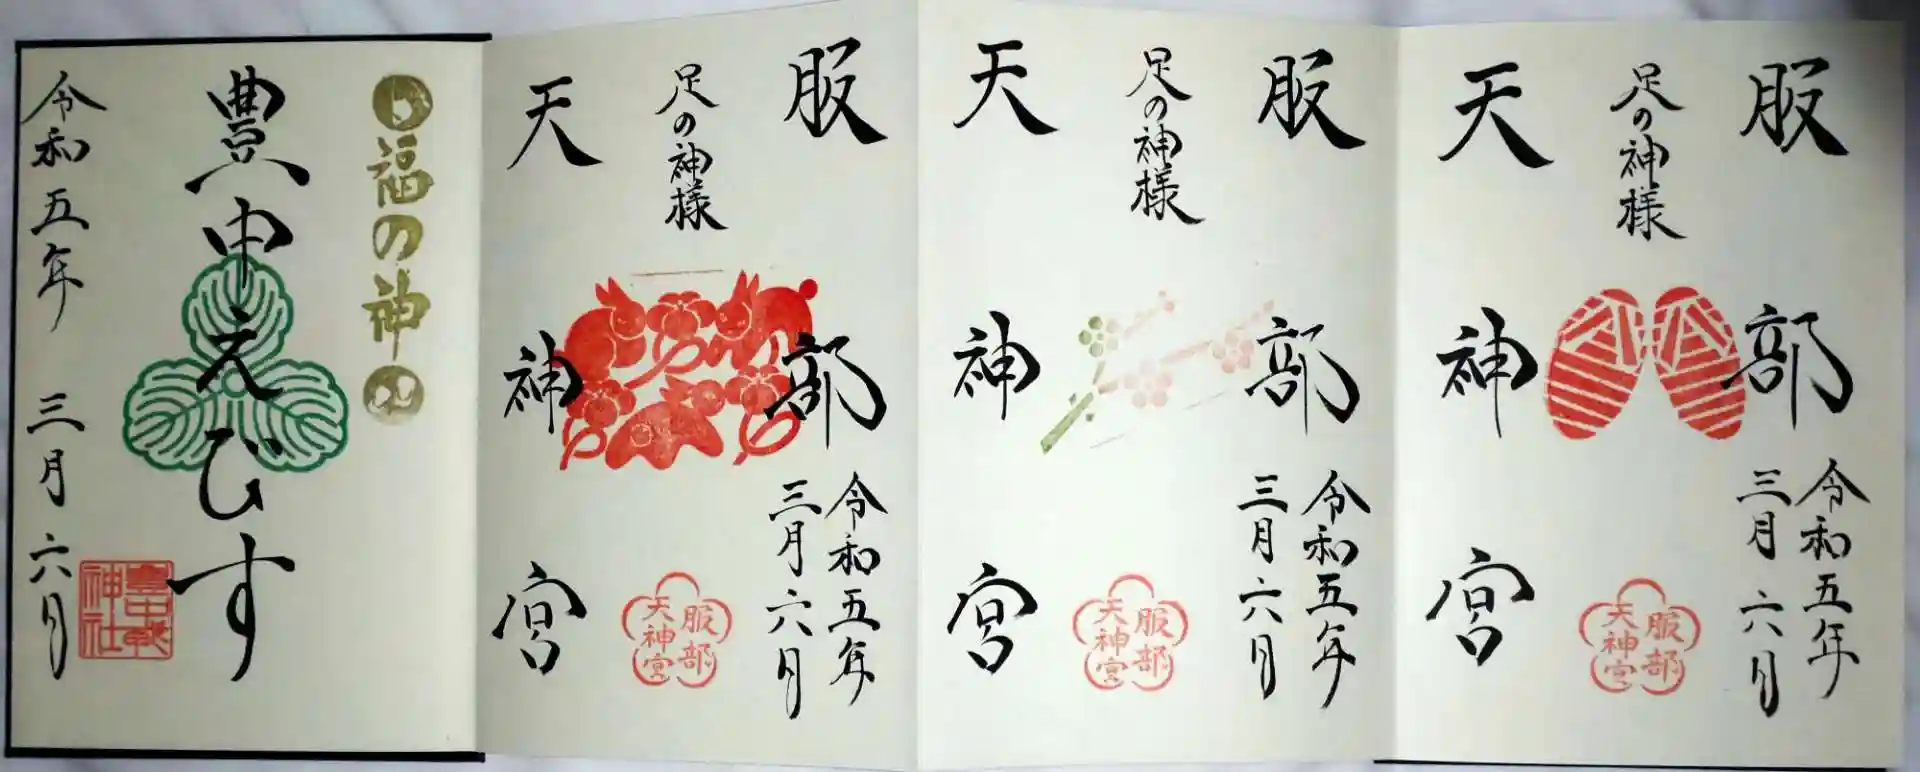 服部
足の神様
天神宮
令和五年
三月六日
服部
天神宮
服部
足の神様
天神宮
令和五年
三月六日
服部
天神宮
服部
足の神様
天神宮
令和五年
三月六日
服部
天神宮
福の神
豊中えびす
令和五年 三月六日
豊中戎
神社